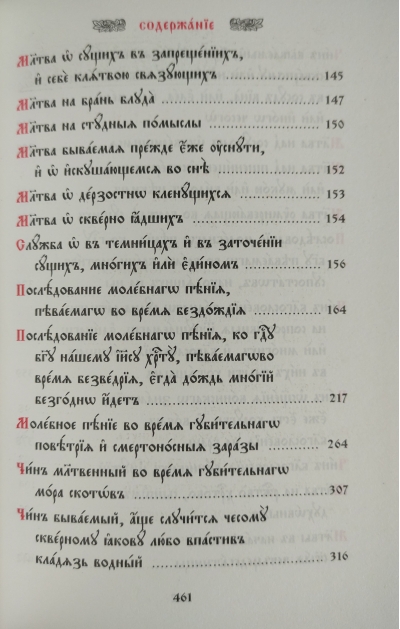 СОДЕРЖА́НЇЕ
Мл҃тва ѡ҆ су́щихъ въ запреще́нїихъ,
и҆ себѐ клѧ́твою свѧзу́ющихъ 145
Мл҃тва на бра́нь блуда̀ 147
Мл҃тва на сту́дныѧ по́мыслы 150
Мл҃тва быва́емаѧ пре́жде є҆́же ᲂу҆снꙋ́ти,
и҆ ѡ҆ и҆скꙋша́ющемсѧ во снѣ̀ 152
Мл҃тва ѡ҆ де́рзостнѡ клену́щихсѧ 153
Мл҃тва ѡ҆ скве́рно ꙗ҆́дшихъ 154
Слꙋ́жба ѡ҆ въ темни́цахъ и҆ въ заточе́нїи
сꙋ́щихъ, мно́гихъ и҆лѝ є҆ди́номъ 156
Послѣ́дованїе моле́бнагѡ пѣ́нїѧ,
пѣва́емагѡ во вре́мѧ бездо́ждїѧ 164
Послѣ́дованїе моле́бнагѡ пѣ́нїѧ, ко гдⷭ҇ꙋ
бг҃ꙋ на́шемꙋ і҆и҃сꙋ хрⷭ҇тꙋ̀, пѣва́емагѡво
вре́мѧ безве́дрїѧ, є҆гда̀ до́ждь мно́гїй
безго́днѡ и҆́детъ 217
Моле́бное пѣ́нїе во вре́мѧ гꙋби́тельнагѡ
повѣ́трїѧ и҆ смертоно́сныѧ зара́зы 264
Чи́нъ мл҃твенный во вре́мѧ гꙋби́тельнагѡ
мо́ра скотѡ́въ 307
Чи́нъ быва́емый, а҆́ще слꙋчи́тсѧ чесомꙋ̀
скве́рномꙋ ꙗ҆ковꙋ̀ лю́бо впа́стивъ
кла́дѧзь во́дный 316
461